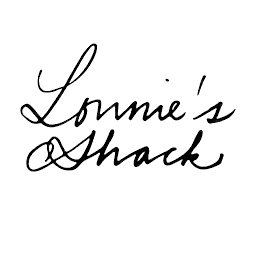 Lonnie's
Shack